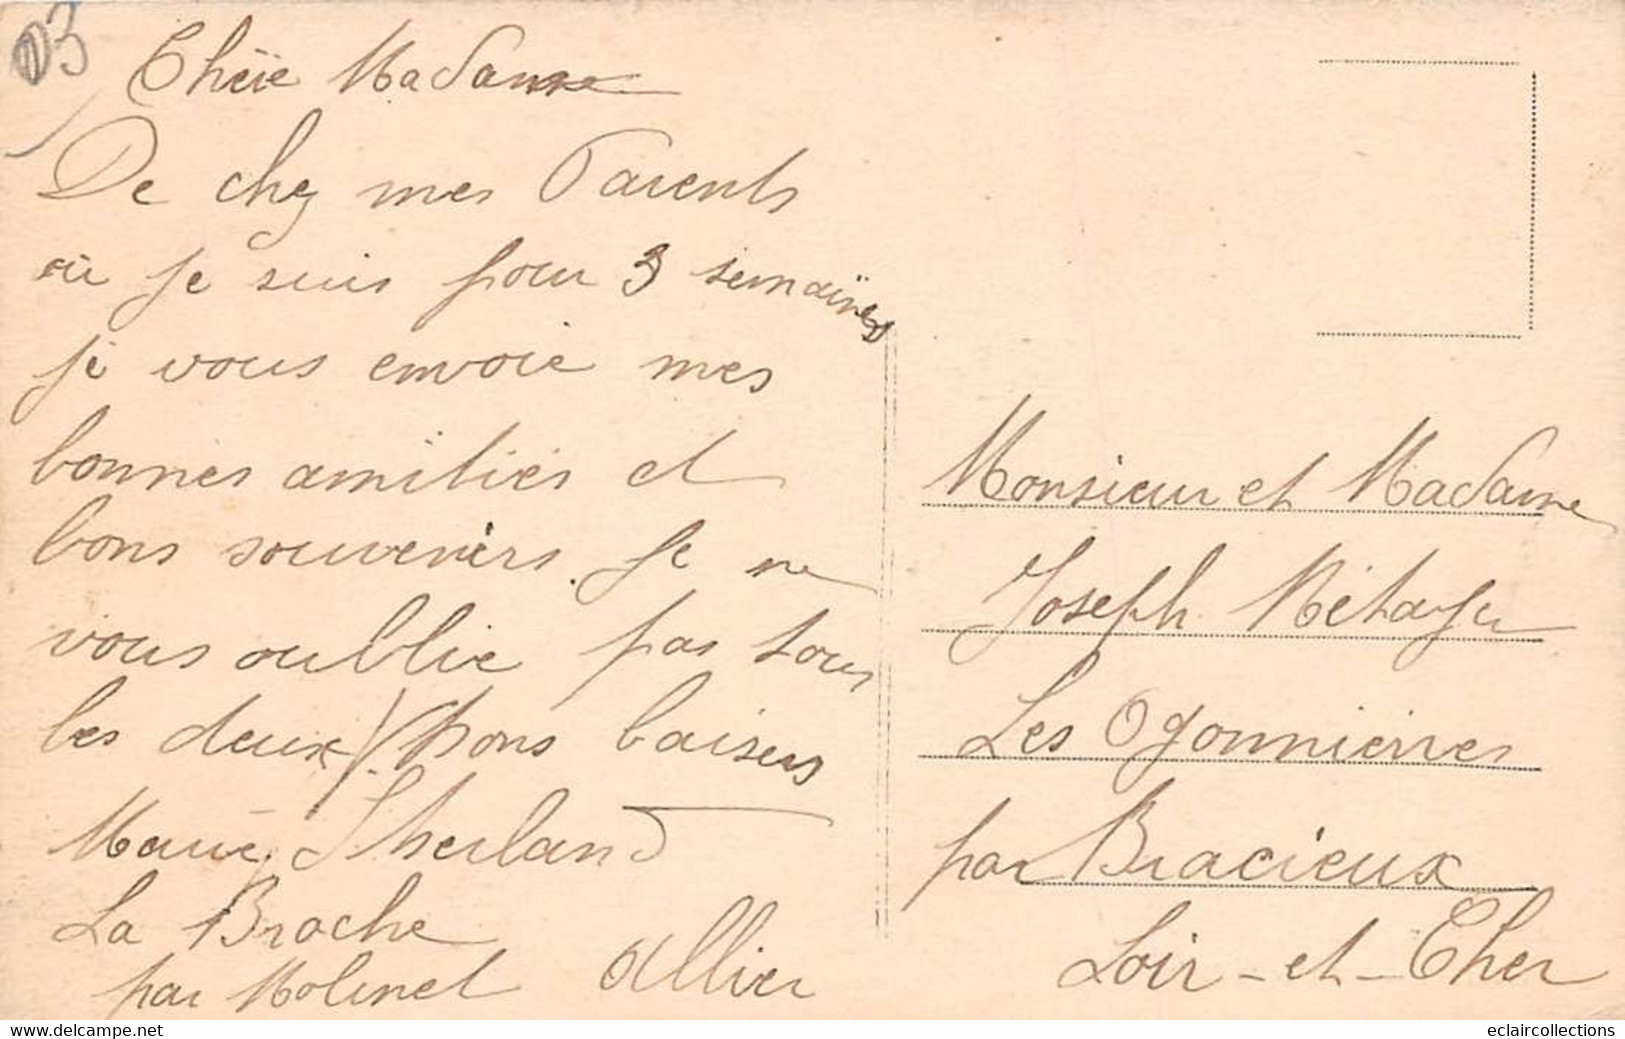 03
Chère Madame
De chez mes Parents
où je suis pour 3 semaines
je vous envoie mes
bonnes amitiés et
bons souvenirs. Je ne
vous oublie pas tous
les deux bons baisers
Marie Therland
La Broche
par Molinet Allier
Monsieur et Madame
Joseph Métayer
Les Ogonnieres
par Bracieux
Loir-et-Cher
www.delcampe.net
eclaircollections